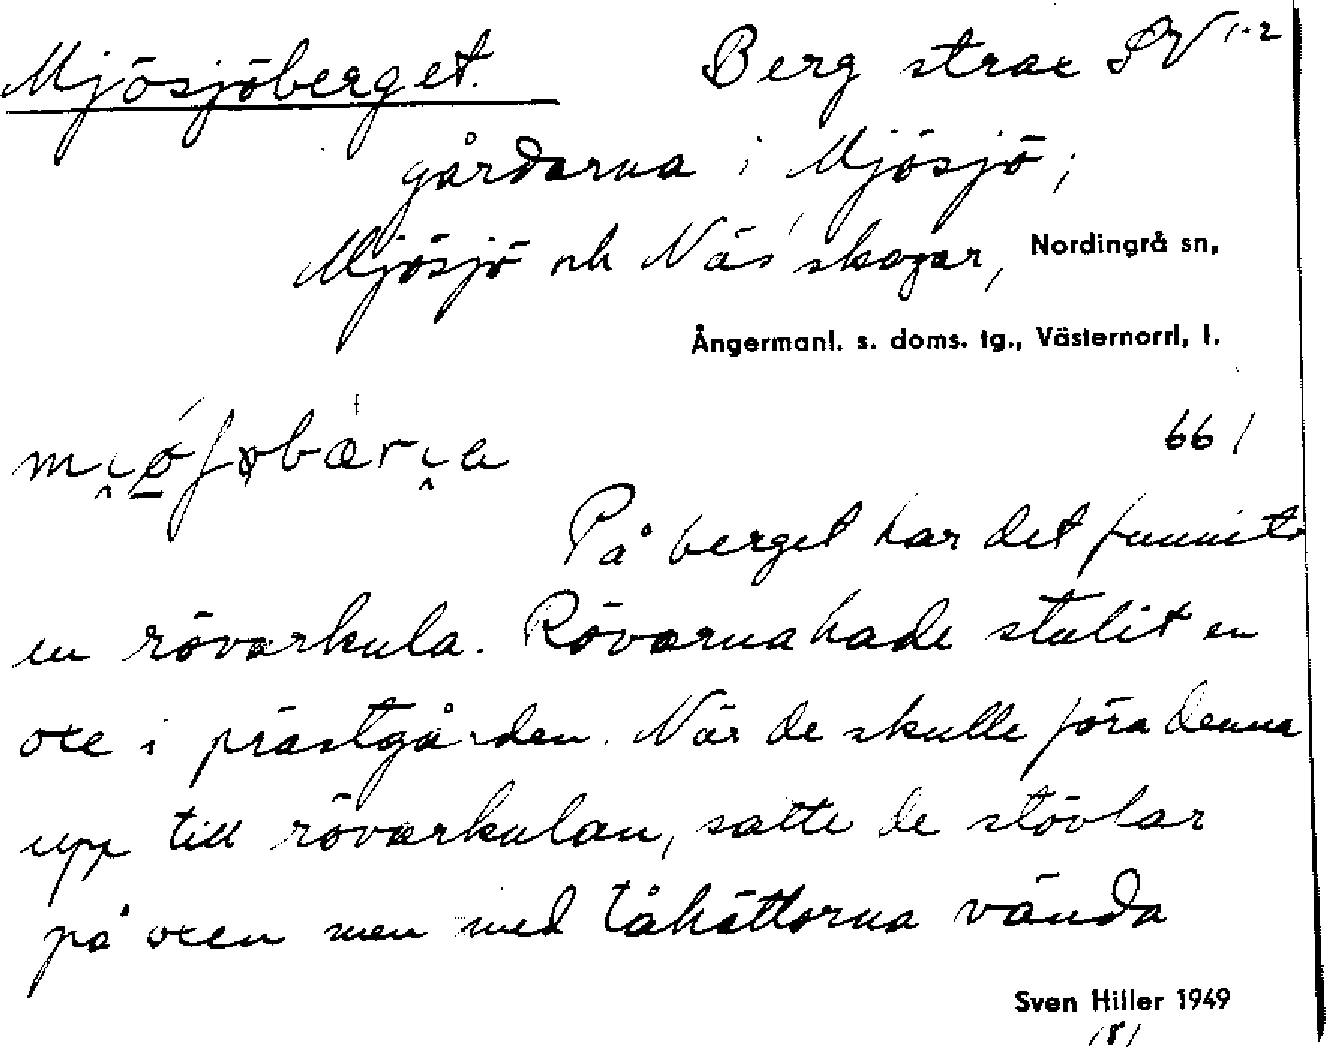 Mjösjöberget. Berg strax SV 1-2
gårdarna i Mjösjö;
Mjösjö och Näs' skogar, Nordingrå sn,
Ångermanl. s. doms. tg., Västernorrl. l.
661
På berget har det funnits
en rövarkula. Rövarna hade stulit en
oxe i prästgården. När de skulle föra denna
upp till rövarkulan, satte de stövlar
på oxen men med tåhättorna vända
Sven Hiller 1949
/8/